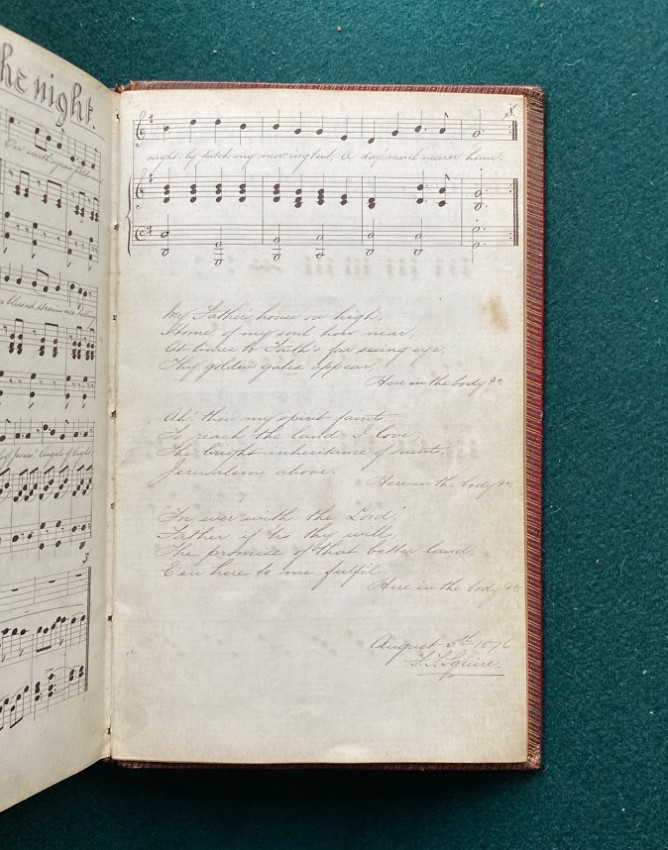 he night.
night by pitch my mov-ing tent, A day's march nearer home.
blessed
of Jesus! Angels of light
3
My Father's house on high,
Home of my soul how near,
At times to Faith's far seeing eye,
Thy golden gates appear,
Here in the body &c
Ah! then my spirit faints
To reach the land I love,
The bright inheritance of saints,
Jerusalem above.
Here in the body &c
"For ever with the Lord",
Father if 'tis thy will,
The promise of that better land,
E'en here to me fulfil
Here in the body &c
August 5th 1876
Squire.